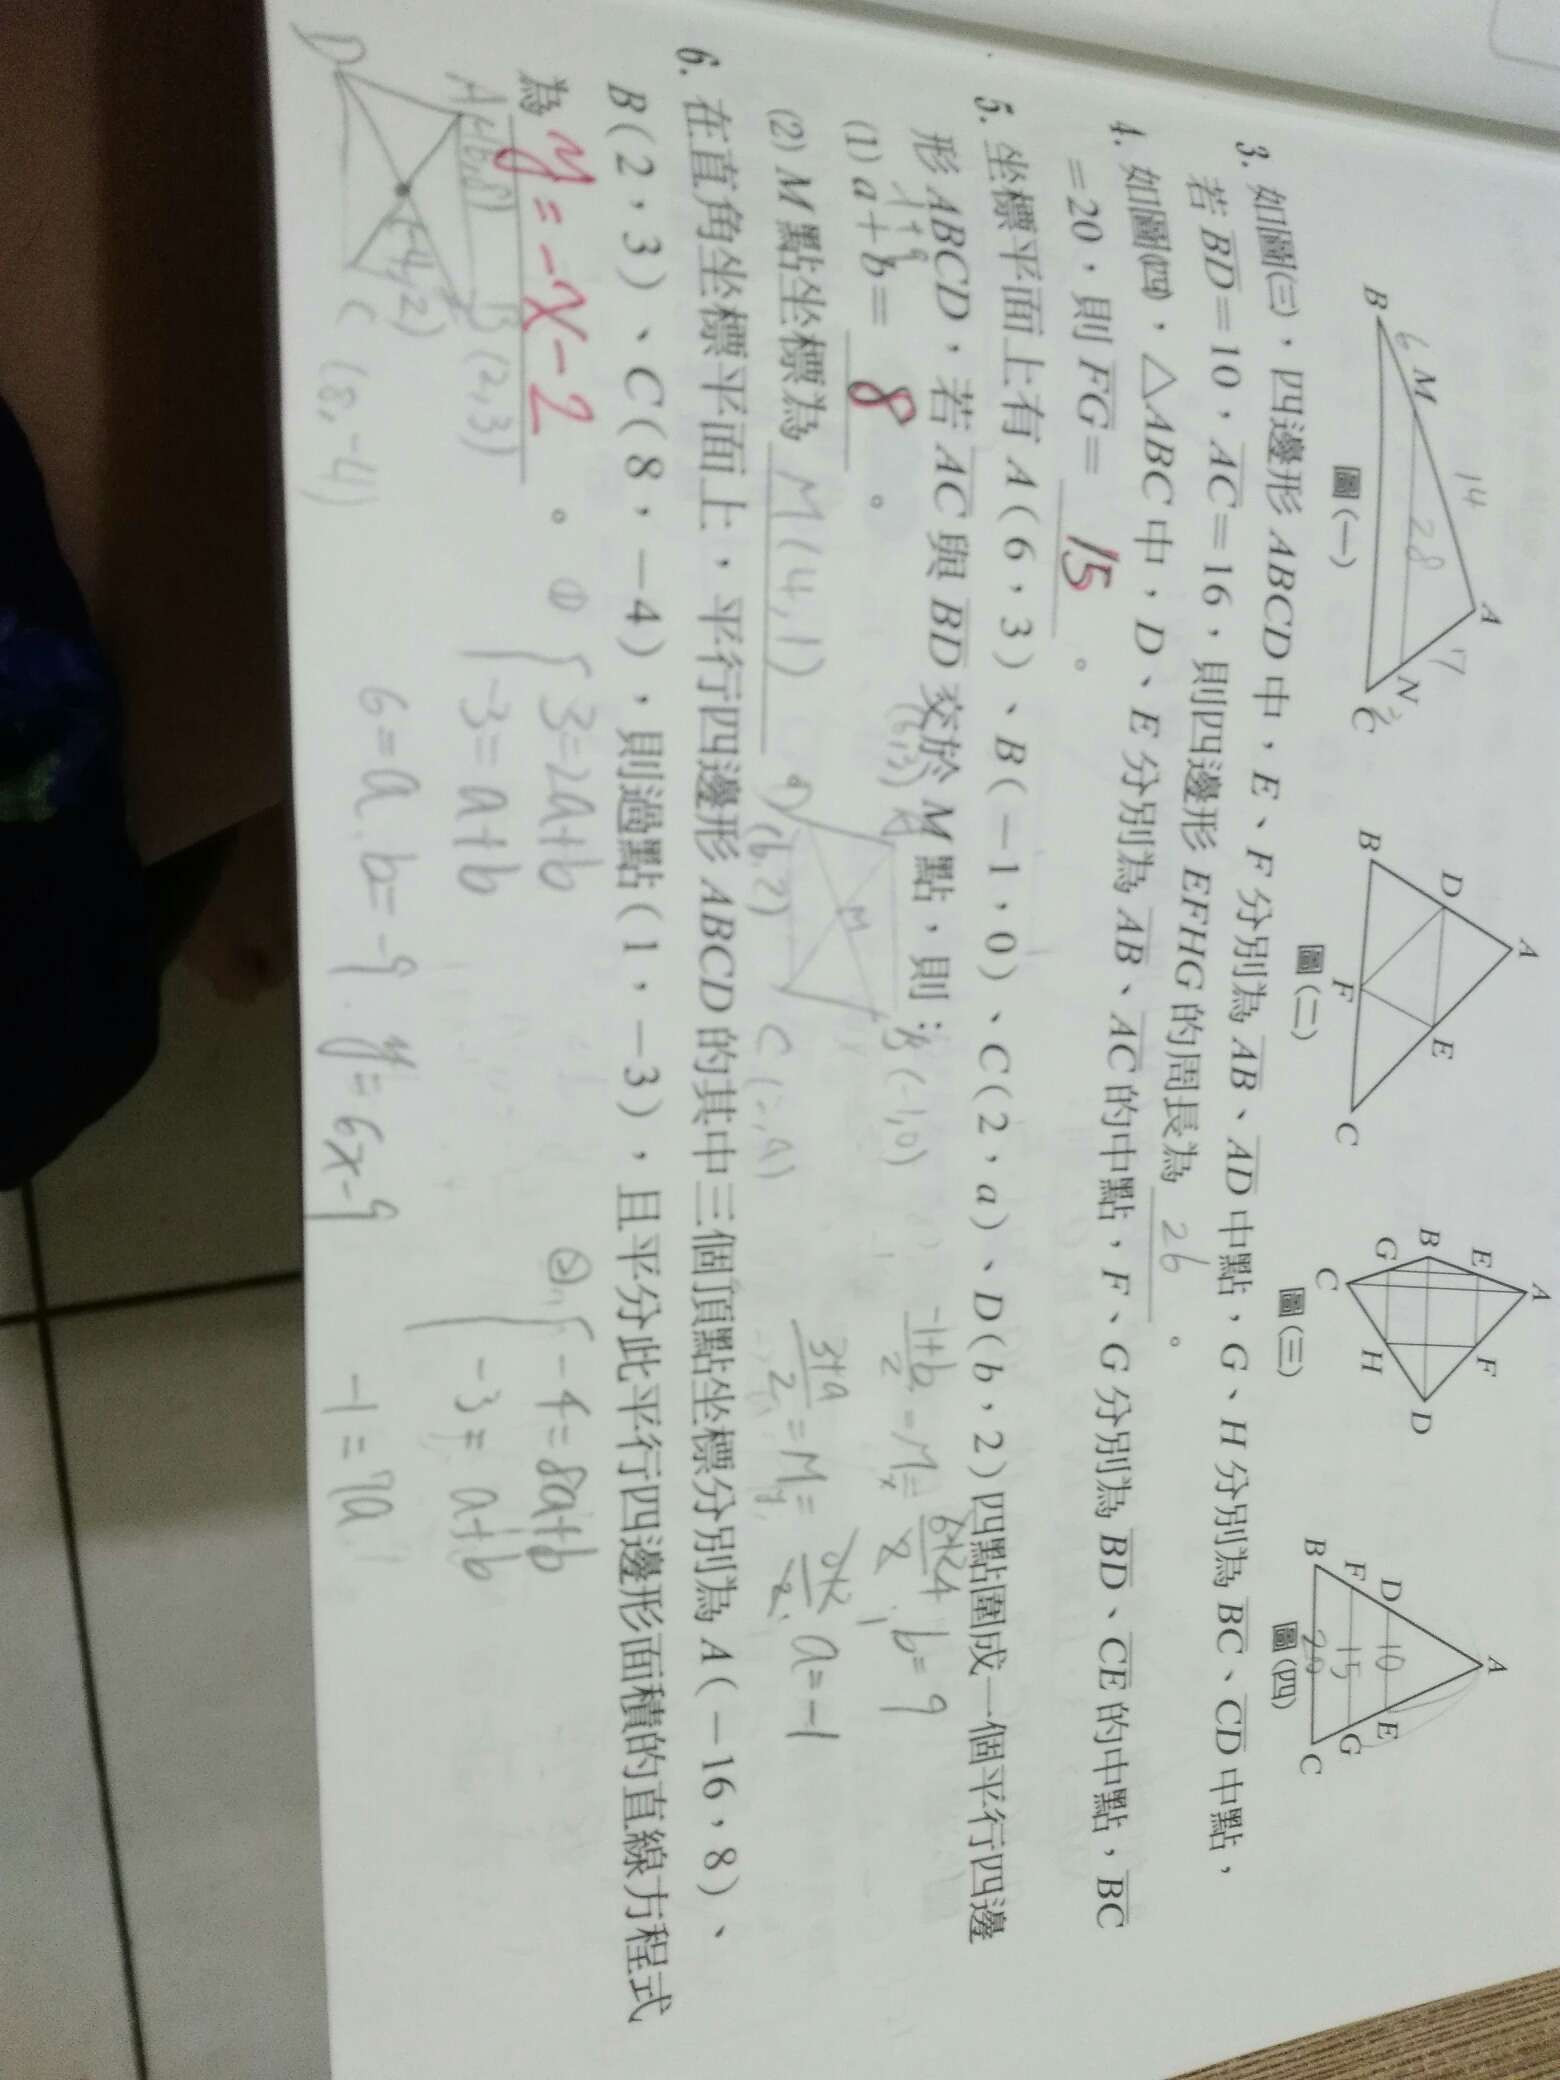 A
14
6
M
28
7
N
2
B
C
圖(一)
A
D
E
B
F
C
圖(二)
A
E
F
B
D
G
H
C
圖(三)
A
D
10
E
F
15
G
B
20
C
圖(四)
3. 如圖(三),四邊形 ABCD 中,E、F 分別為 AB、AD 中點,G、H 分別為 BC、CD 中點,
若 BD=10,AC=16,則四邊形 EFHG 的周長為 26 。
4. 如圖(四),△ABC 中,D、E 分別為 AB、AC 的中點,F、G 分別為 BD、CE 的中點,BC
=20,則 FG= 15 。
5. 坐標平面上有 A(6,3)、B(-1,0)、C(2,a)、D(b,2)四點圍成一個平行四邊
形 ABCD,若 AC 與 BD 交於 M 點,則:
-1+9
(1) a+b= 8 。
(6,3) A
B(-1,0)
M
D
(b,2)
-1+b/2=Mx=6+2/2, b=9
3+a/2=My=0+2/2, a=-1
(2) M 點坐標為 M(4,1)
6. 在直角坐標平面上,平行四邊形 ABCD 的其中三個頂點坐標分別為 A(-16,8)、
B(2,3)、C(8,-4),則過點(1,-3),且平分此平行四邊形面積的直線方程式
為 y=-x-2 。
① { 3=2a+b
-3=a+b
6=a, b=-9, y=6x-9
② { -4=8a+b
-3=a+b
-1=7a
A(-16,8)
B(2,3)
(-4,2)
D
C
(8,-4)